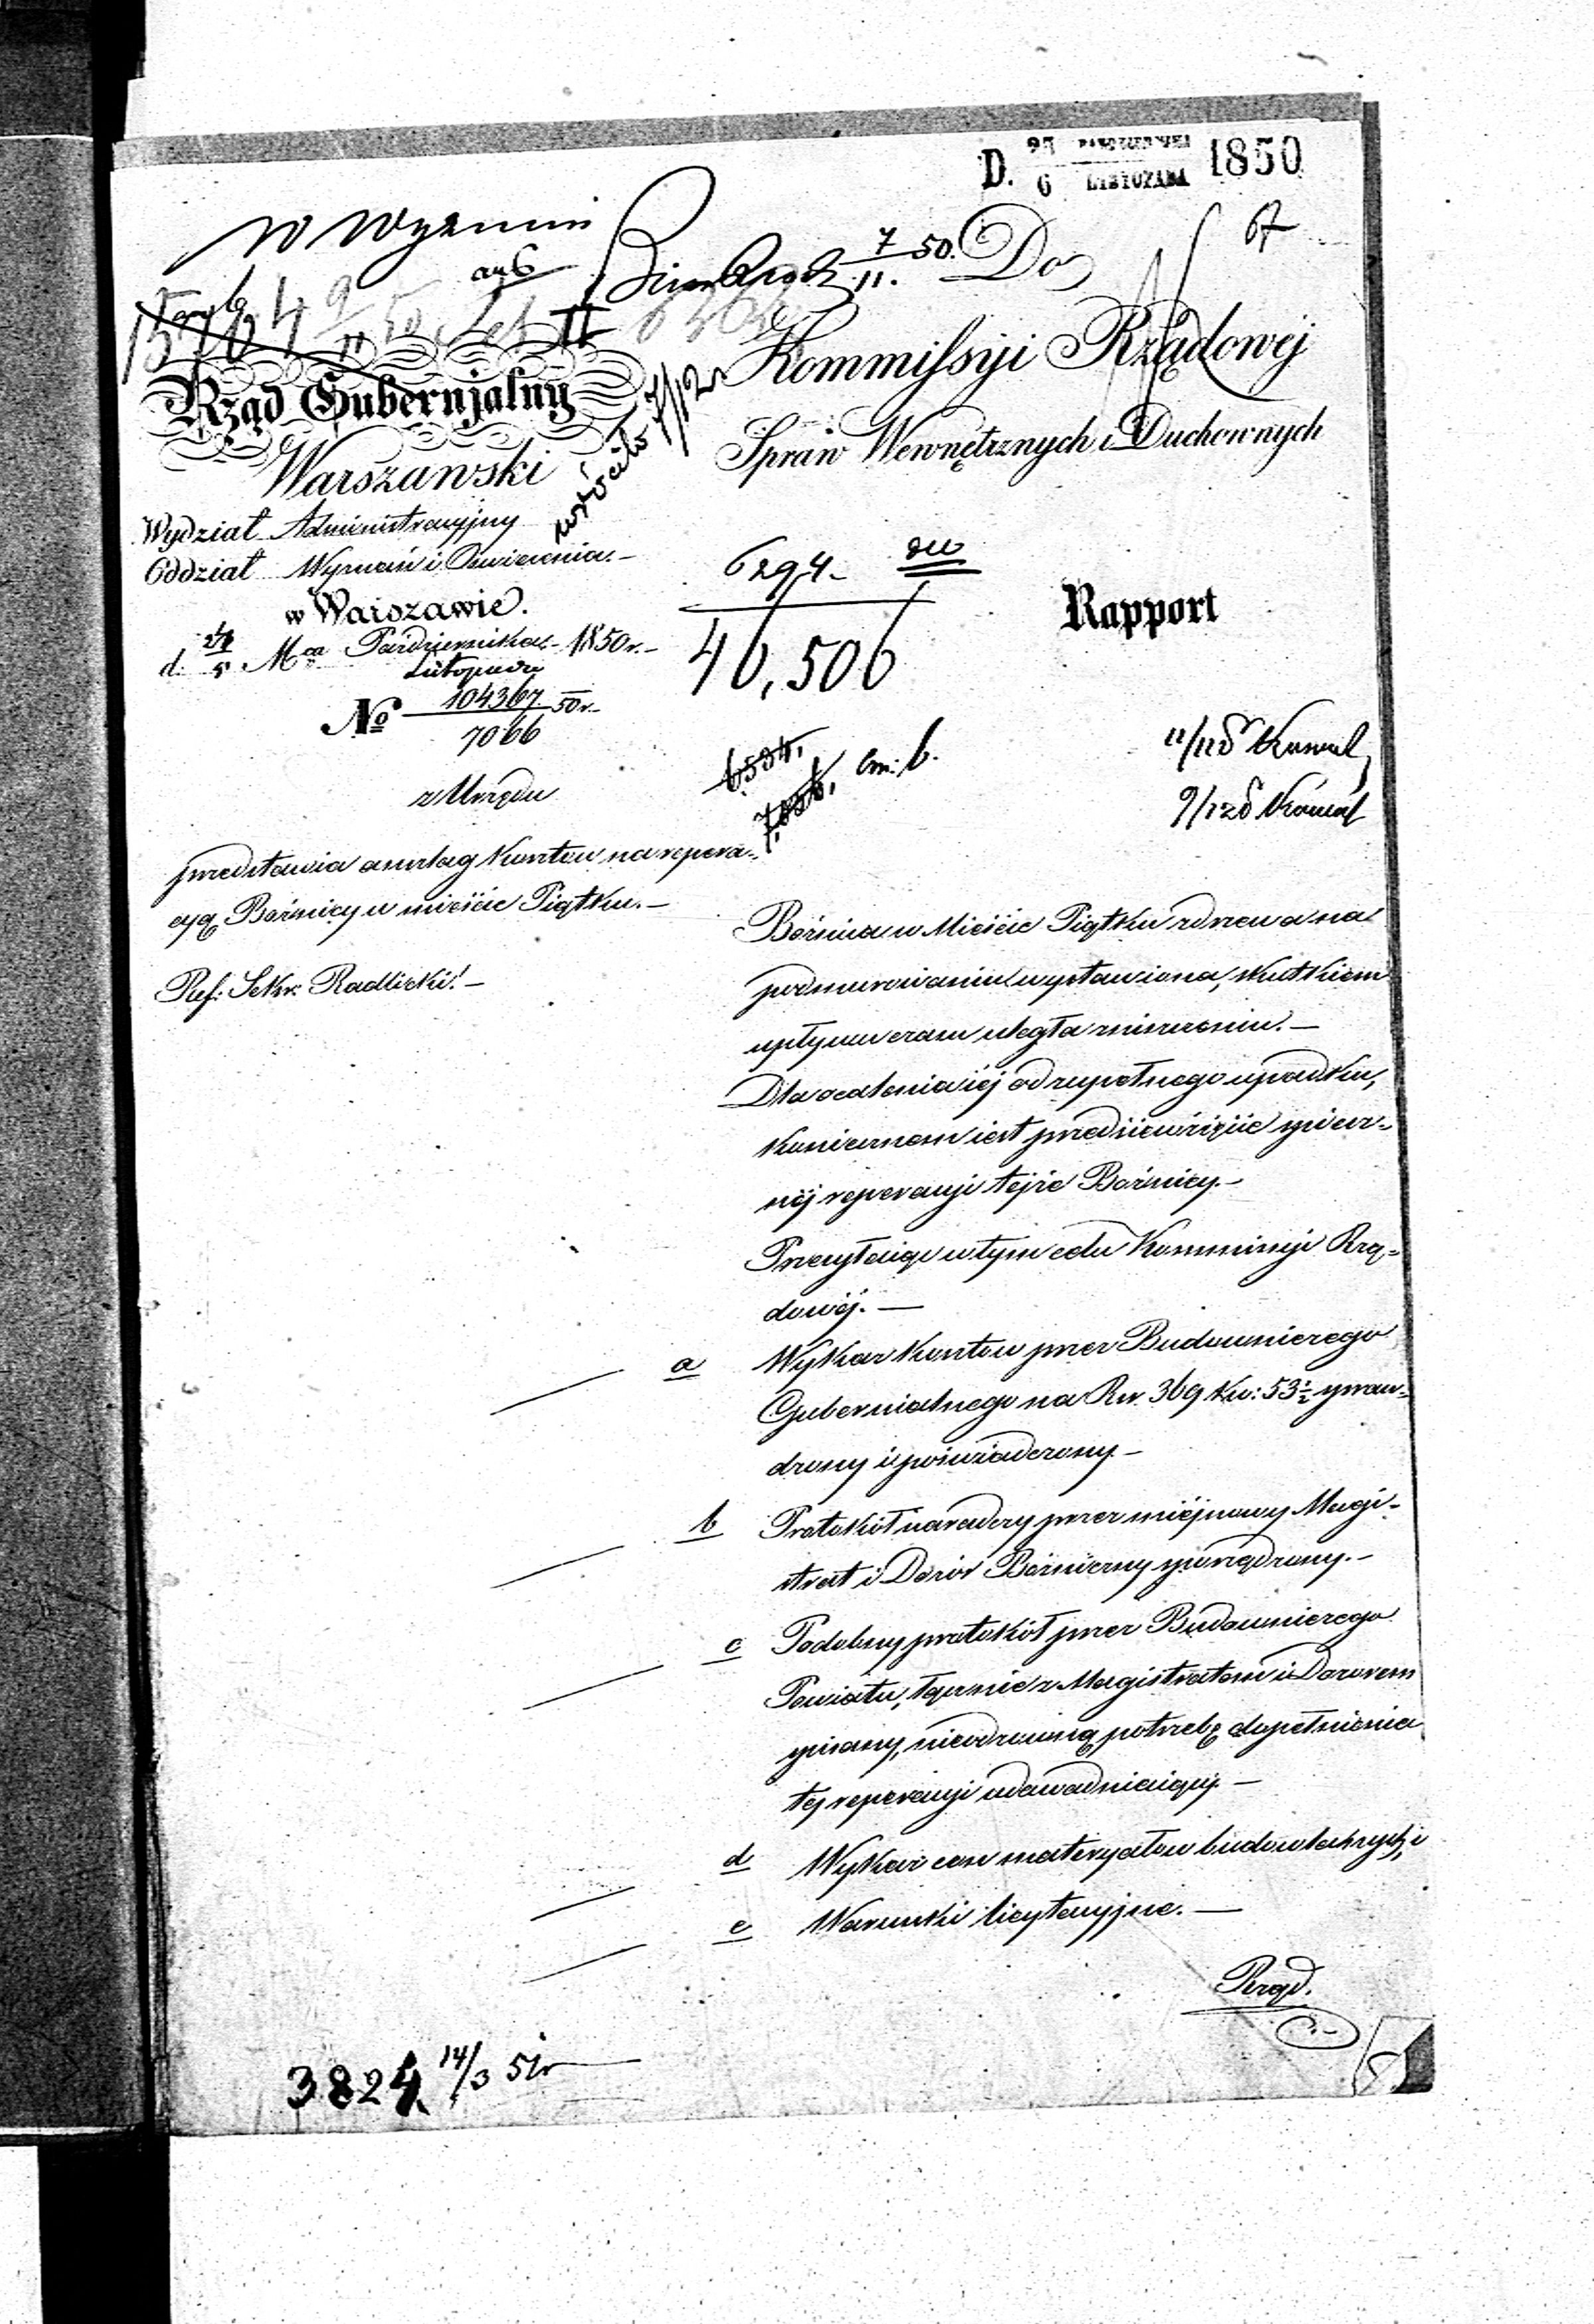 D. 25 PAŹDZIERNIKA 1850
6 LISTOPADA
67
7/11. 50.
Do
Kommissyi Rządowéj
Spraw Wewnętrznych i Duchownych
Rząd Gubernjalny
Warszawski
Wydział Administracyjny
Oddział Wyznań i Oświecenia.—
w Warszawie.
d. 24/5 Mca Października/Listopada 1850 r.—
№ 104367/7066 50 r.
z Urzędu
6294.
46,506
Rapport
6594.
7056.
przedstawia anszlag kosztów na repera-
cyą Bożnicy w mieście Piątku.—
Ref: Sekr: Radlicki.—
Bożnica w Mieście Piątku z drzewa na
podmurowaniu wystawiona, skutkiem
upływu czasu uległa zniszczeniu.—
Dla ocalenia jéj od zupełnego upadku,
koniecznem iest przedsięwzięcie spiesz-
néj reperacyi tejże Bożnicy.—
Przesyłaiąc w tym celu Kommissyi Rzą-
dowéj.—
a Wykaz kosztów przez Budowniczego
Gubernialnego na Rsr. 369 ko: 53½ spraw-
dzony i poświadczony—
b Protokół narady przez miéjscowy Magi-
strat i Dozór Bożniczny sporządzony.—
c Podobny protokół przez Budowniczego
Powiatu, łącznie z Magistratem i Dozorem
spisany, nieodzowną potrzebę dopełnienia
téj reperacyi udowadniaiący.—
d Wykaz cen materyałów budowlanych, i
e Warunki licytacyjne.—
Rząd.
3824 14/3 51r